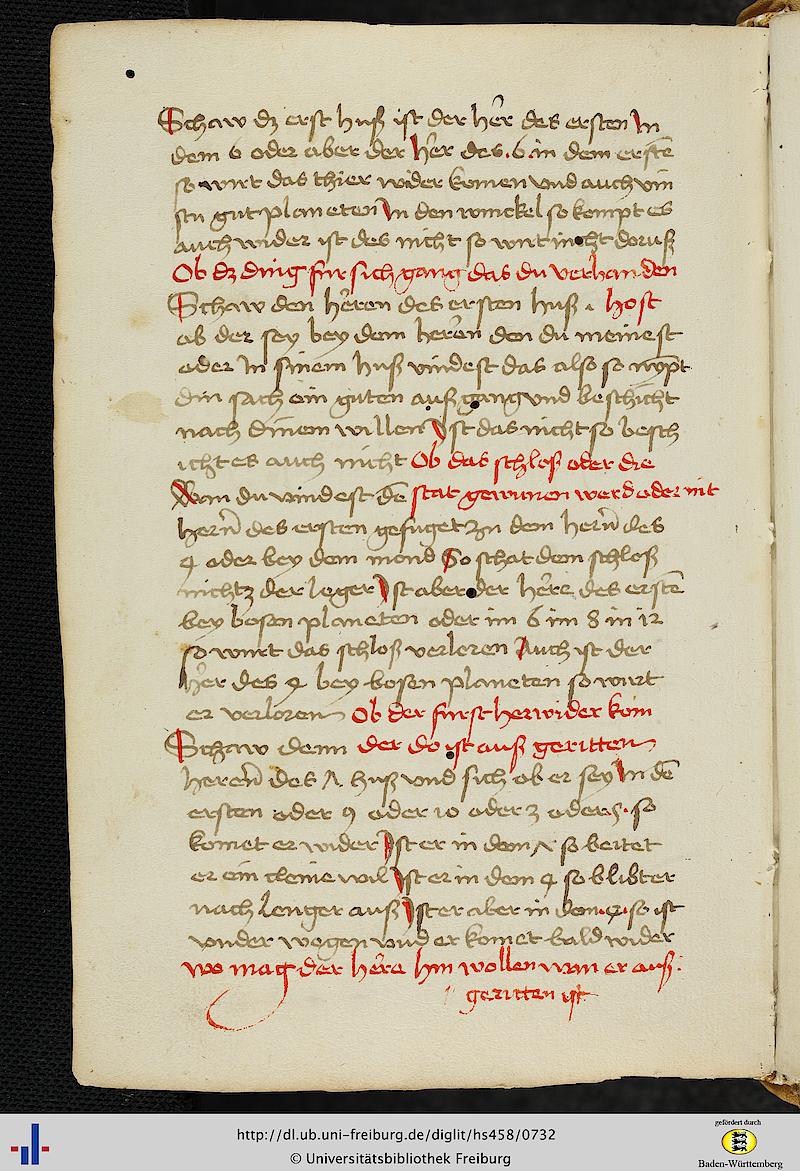 Schaw dz erst huß ist der her des ersten In
dem 6 oder aber der her des .6. in dem erste
so wirt das thier wider komen vnd auch vin
stu gut planeten In den winckel so kompt es
auch wider ist des nicht so wirt nicht doruß
Ob dz ding fur sich gang das du verhanden
Schaw den heren des ersten huß . host
ob der sey bey dem heren den du meinest
oder In sinem huß vindest das also so
din sach ein guten außgang vnd beschicht
nach dinem willen Ist das nicht so besch
icht es auch nicht Ob das schloß oder die
Wan du vindest de stat gewunen werd oder nit
hern des ersten gefuget zu dem hern des
4 oder bey dem mond So schat dem schloß
nichtz der leger Ist aber der here des erste
bey bosen planeten oder im 6 im 8 in 12
so wirt das schloß verloren Auch ist der
her des 4 bey bosen planeten so wirt
er verloren Ob der furst herwider kom
Schaw denn der do ist auß geritten
heren des 1 huß vnd sich ob er sey In de
ersten oder 9 oder 10 oder 3 oder 5. so
komet er wider Ist er in dem so beitet
er ein cleine wil Ist er in dem 4 so blibt er
nach lenger auß Ist er aber in dem so ist
vnder wegen vnd er komet bald wider
wo mag der here hin wollen wan er auß
geritten ist
http://dl.ub.uni-freiburg.de/diglit/hs458/0732
© Universitätsbibliothek Freiburg
gefördert durch
Baden-Württemberg